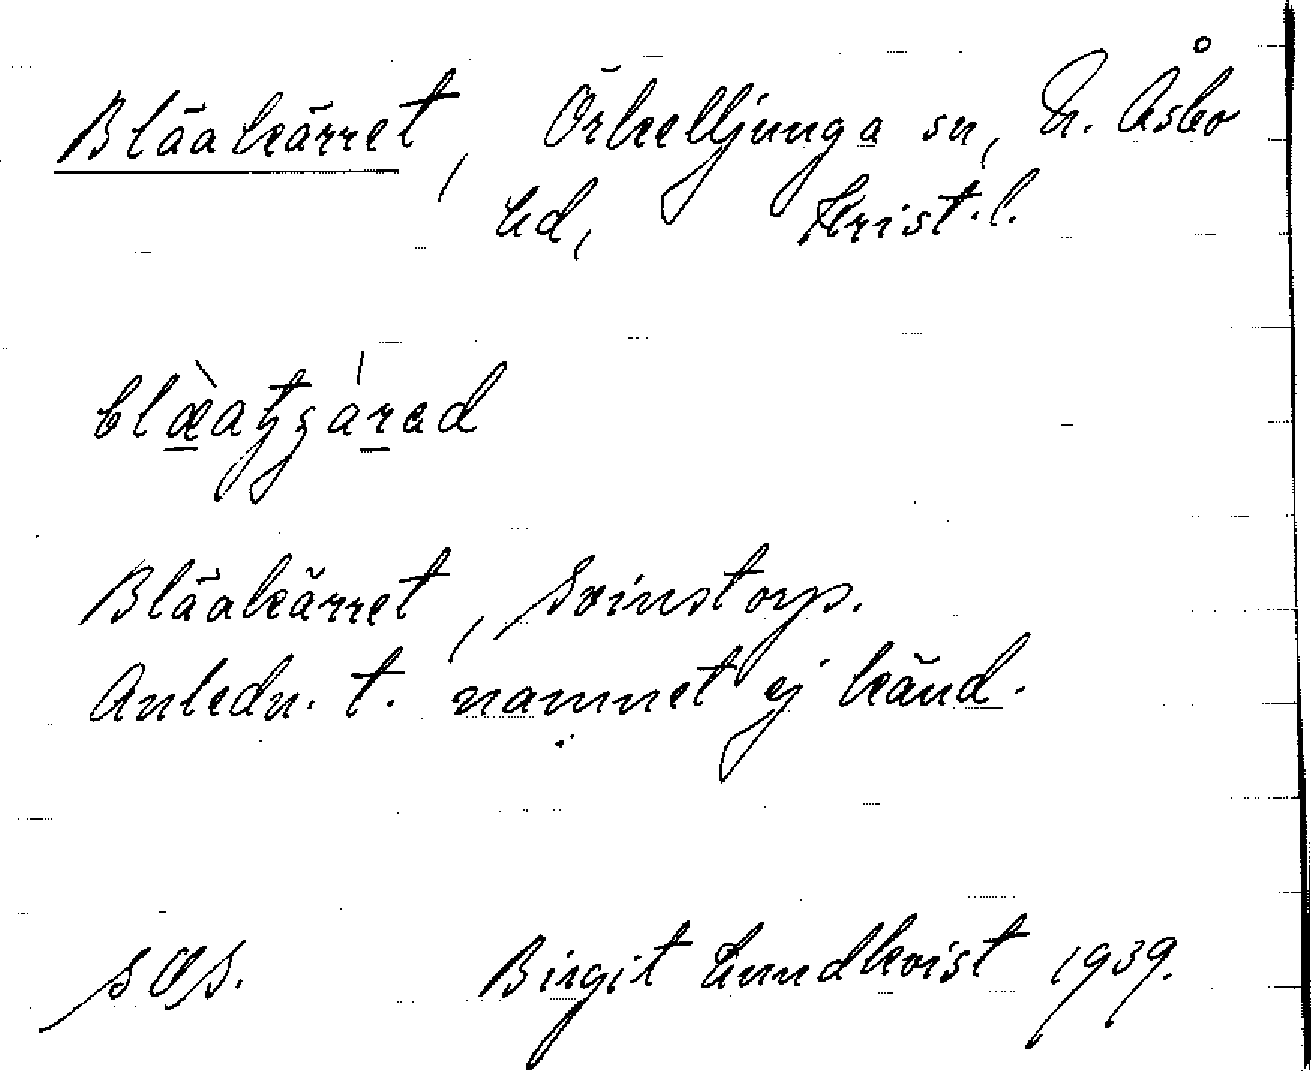 Blääkärret, Örkelljunga sn, N. Åsbo
hd, Krist. l.
Blääkärret, Svinstorp.
Anledn. t. namnet ej känd.
Birgit Lundkvist 1939.